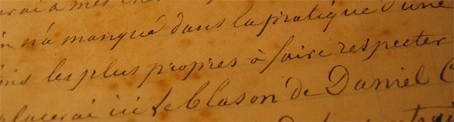 à mes
n n'a manqué dans la pratique d'une
ins les plus propres à faire respecter
placerai ici le blason de Daniel C